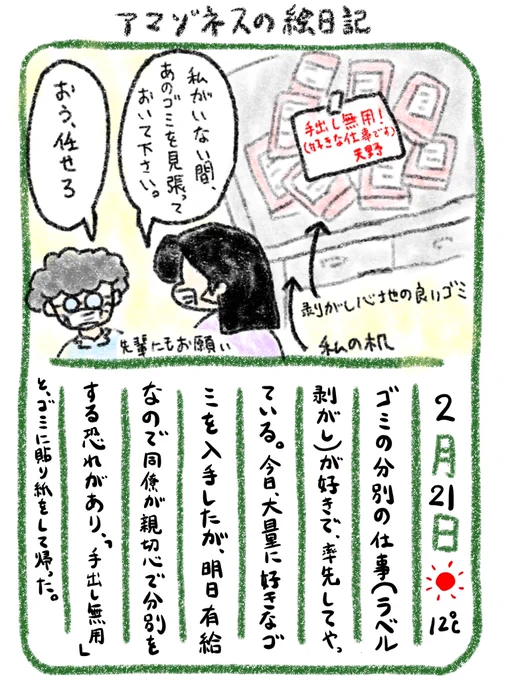 アマゾネスの絵日記
私がいない間、
あのゴミを見張って
おいて下さい。
おう、任せろ
手出し無用!
(好きな仕事です)
天野
剥がし心地の良いゴミ
私の机
先輩にもお願い
2月21日 12℃
ゴミの分別の仕事(ラベル
剥がし)が好きで、率先してやっ
ている。今日、大量に好きなゴ
ミを入手したが、明日有給
なので同僚が親切心で分別を
する恐れがあり、「手出し無用」
と、ゴミに貼り紙をして帰った。